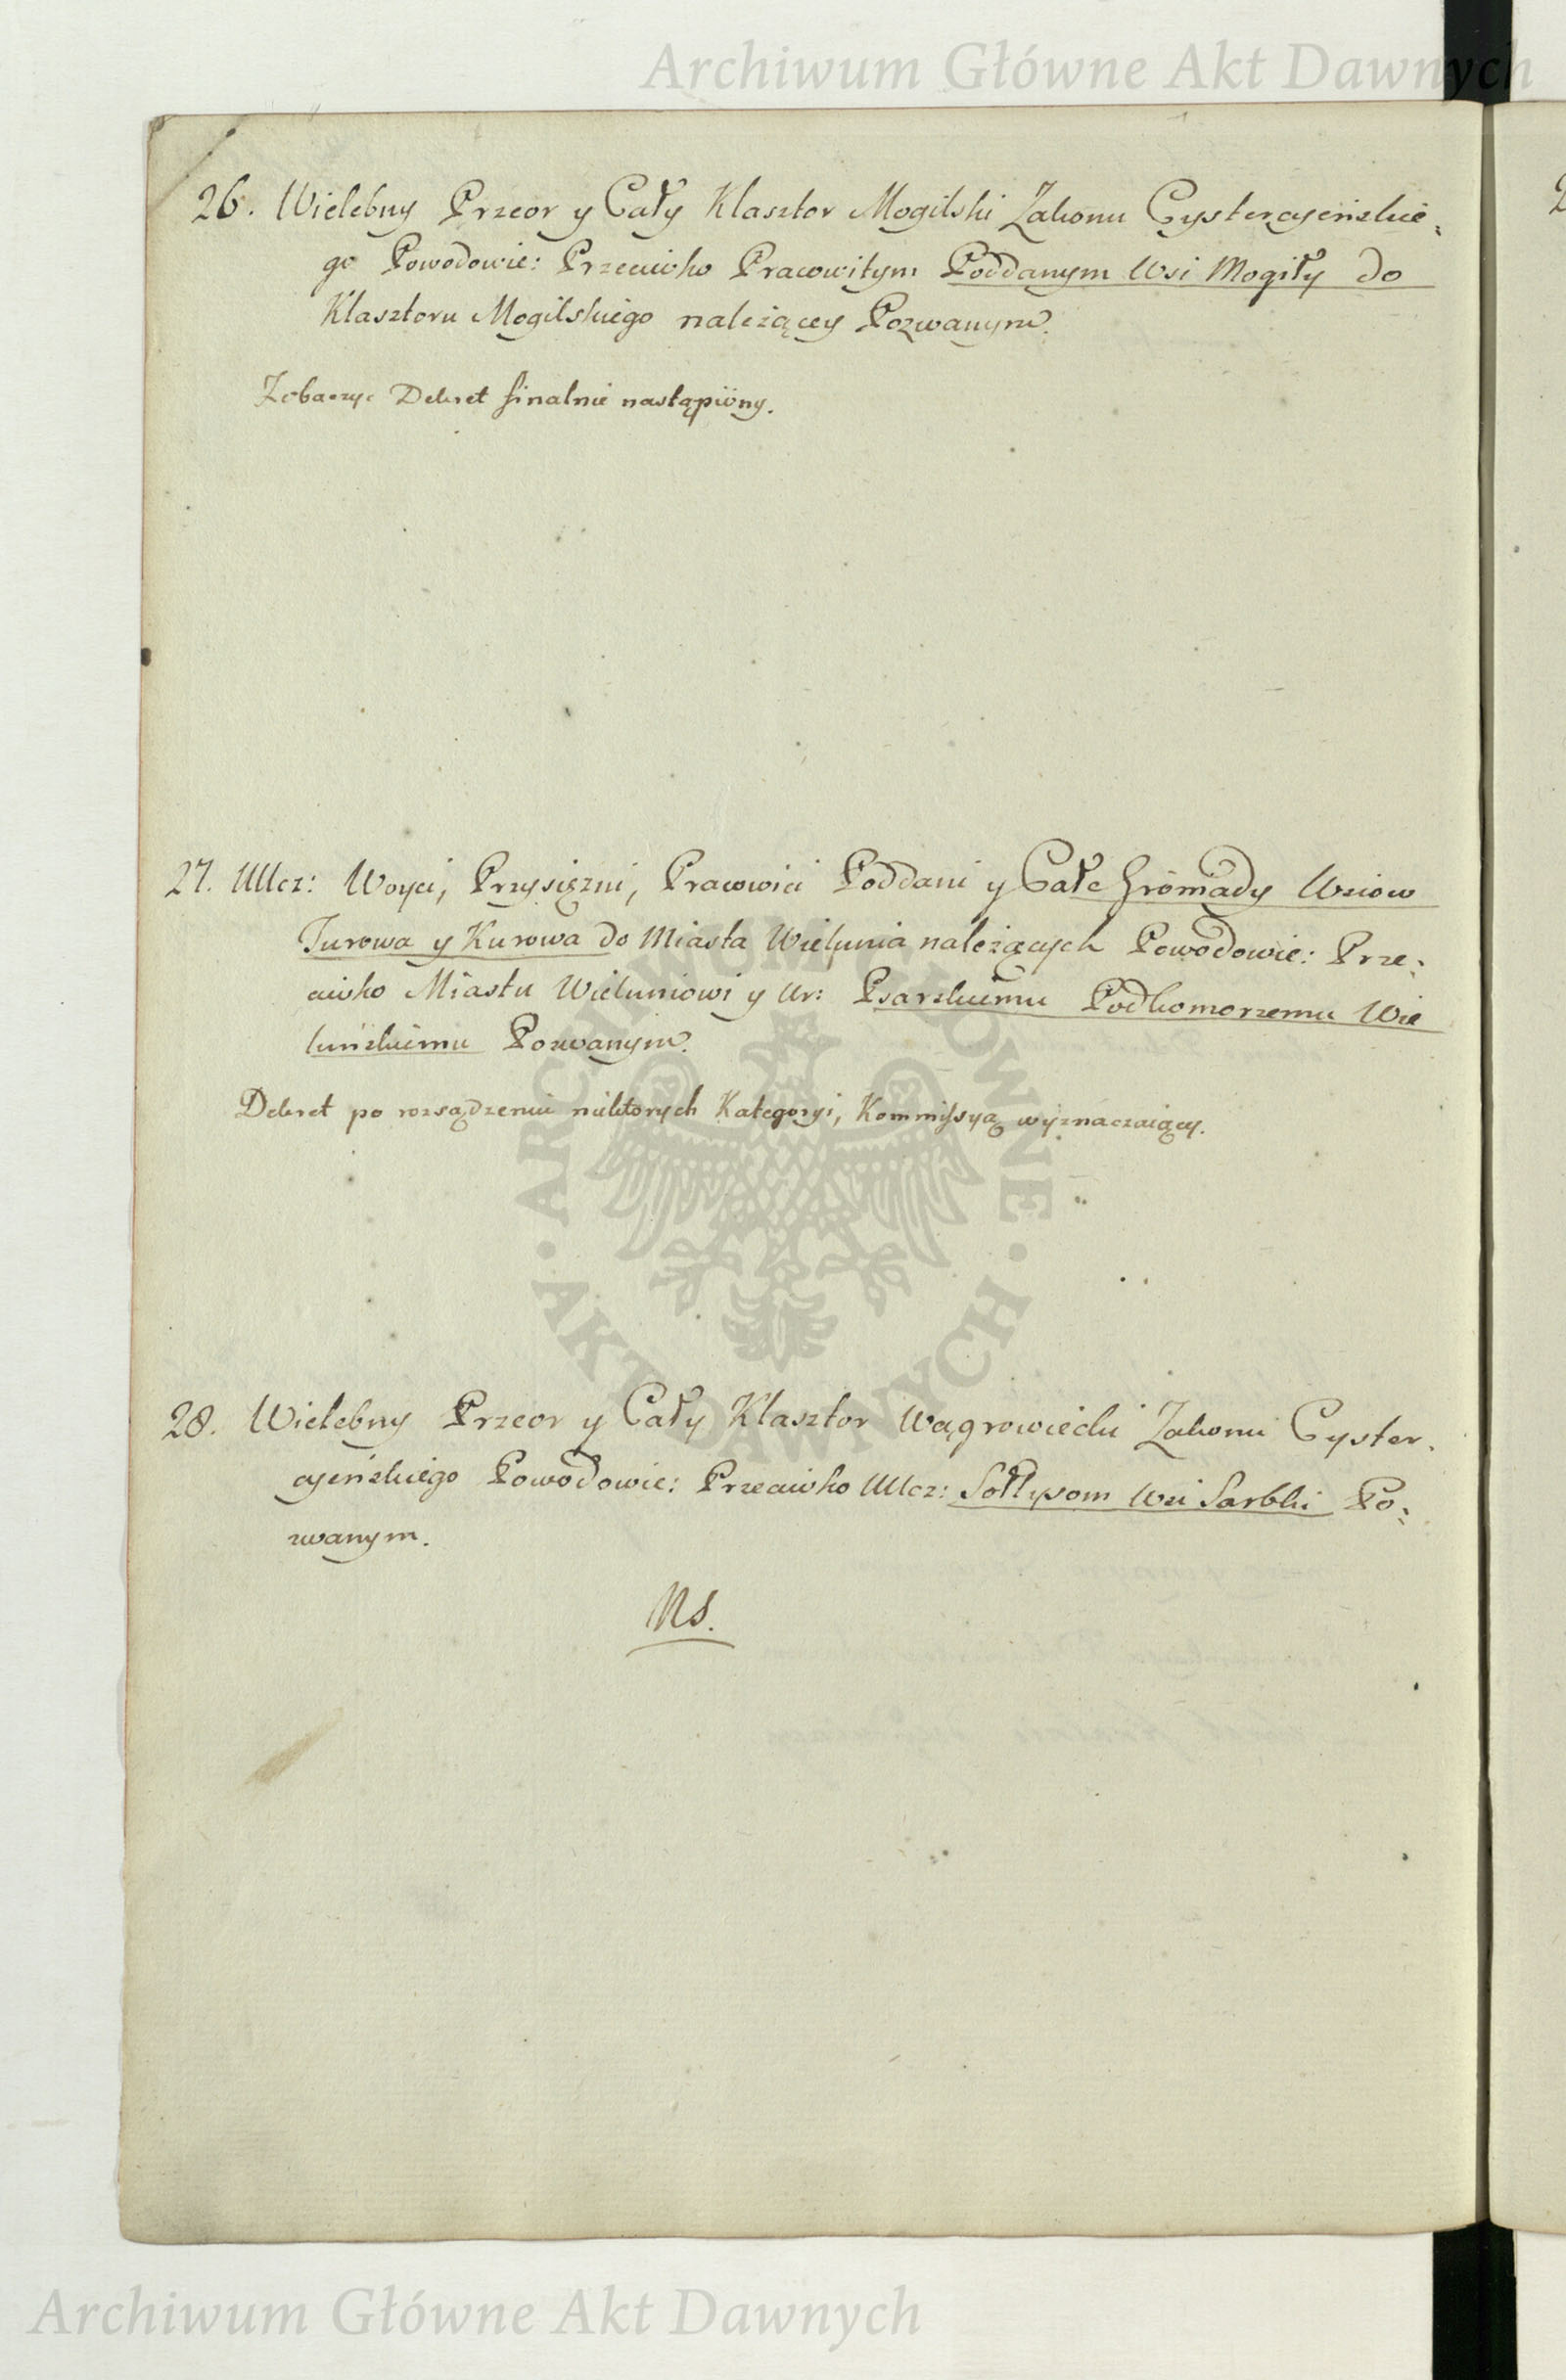 Archiwum Główne Akt Dawnych
26. Wielebny Przeor y Cały Klasztor Mogilski Zakonu Cystercyeńskie,
go Powodowie: Przeciwko Pracowitym Poddanym Wsi Mogiły do
Klasztoru Mogilskiego należącey Pozwanym.
Zobaczyć Dekret finalnie nastąpiony.
27. Ucz: Woyci, Przysiężni, Pracowici Poddani y Całe Gromady Wsiow
Turowa y Kurowa do Miasta Wielunia należących Powodowie: Prze,
ciwko Miastu Wieluniowi y Ur: Psarskiemu Podkomorzemu Wie
luńskiemu Pozwanym.
Dekret po rozsądzeniu niektorych Kategoryi, Kommissyą wyznaczaiący.
28. Wielebny Przeor y Cały Klasztor Wągrowiecki Zakonu Cyster,
cyeńskiego Powodowie: Przeciwko Ucz: Sołtysom Wsi Sarbki Po,
zwanym.
NS.
ARCHIWUM GŁÓWNE · AKT DAWNYCH ·
Archiwum Główne Akt Dawnych